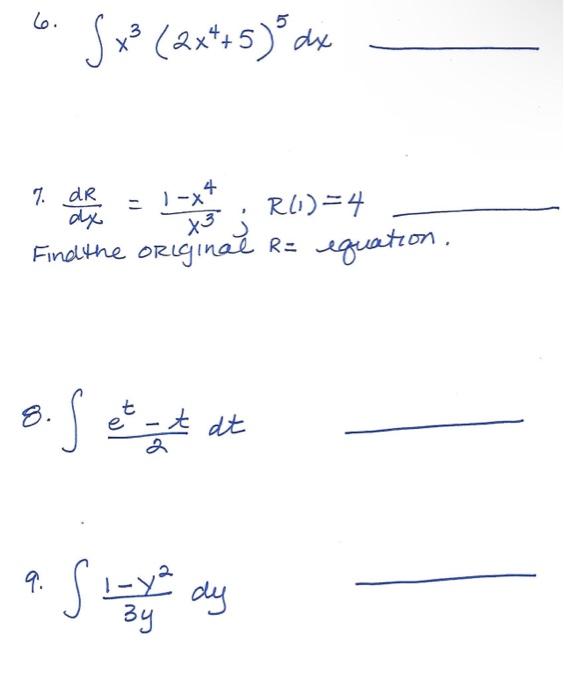 6. ∫ x³ (2x⁴+5)⁵ dx
7. dR/dx = 1-x⁴/x³ ; R(1)=4
Find the ORIGINAL R= equation.
8. ∫ eᵗ - t/2 dt
9. ∫ 1-y²/3y dy